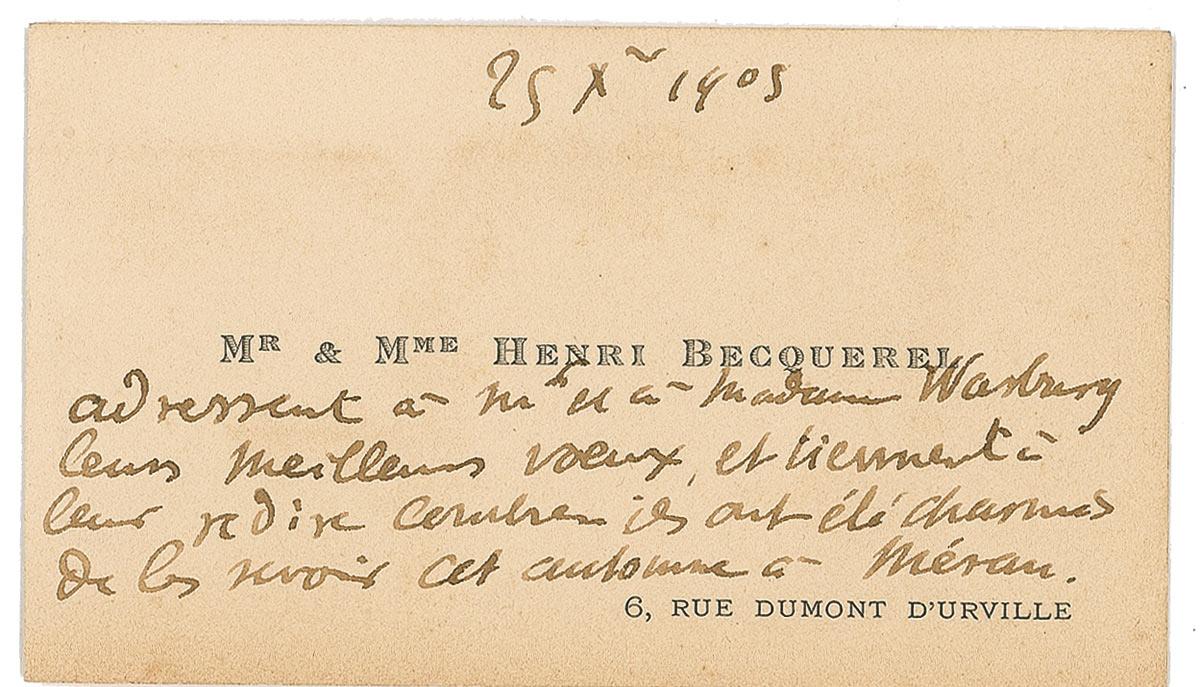 25 Xre 1905
MR & MME HENRI BECQUEREL
adressent à Mr et à Madame Warburg
leurs meilleurs vœux, et tiennent à
leur redire combien ils ont été charmés
de les revoir cet automne à Méran.
6, RUE DUMONT D'URVILLE